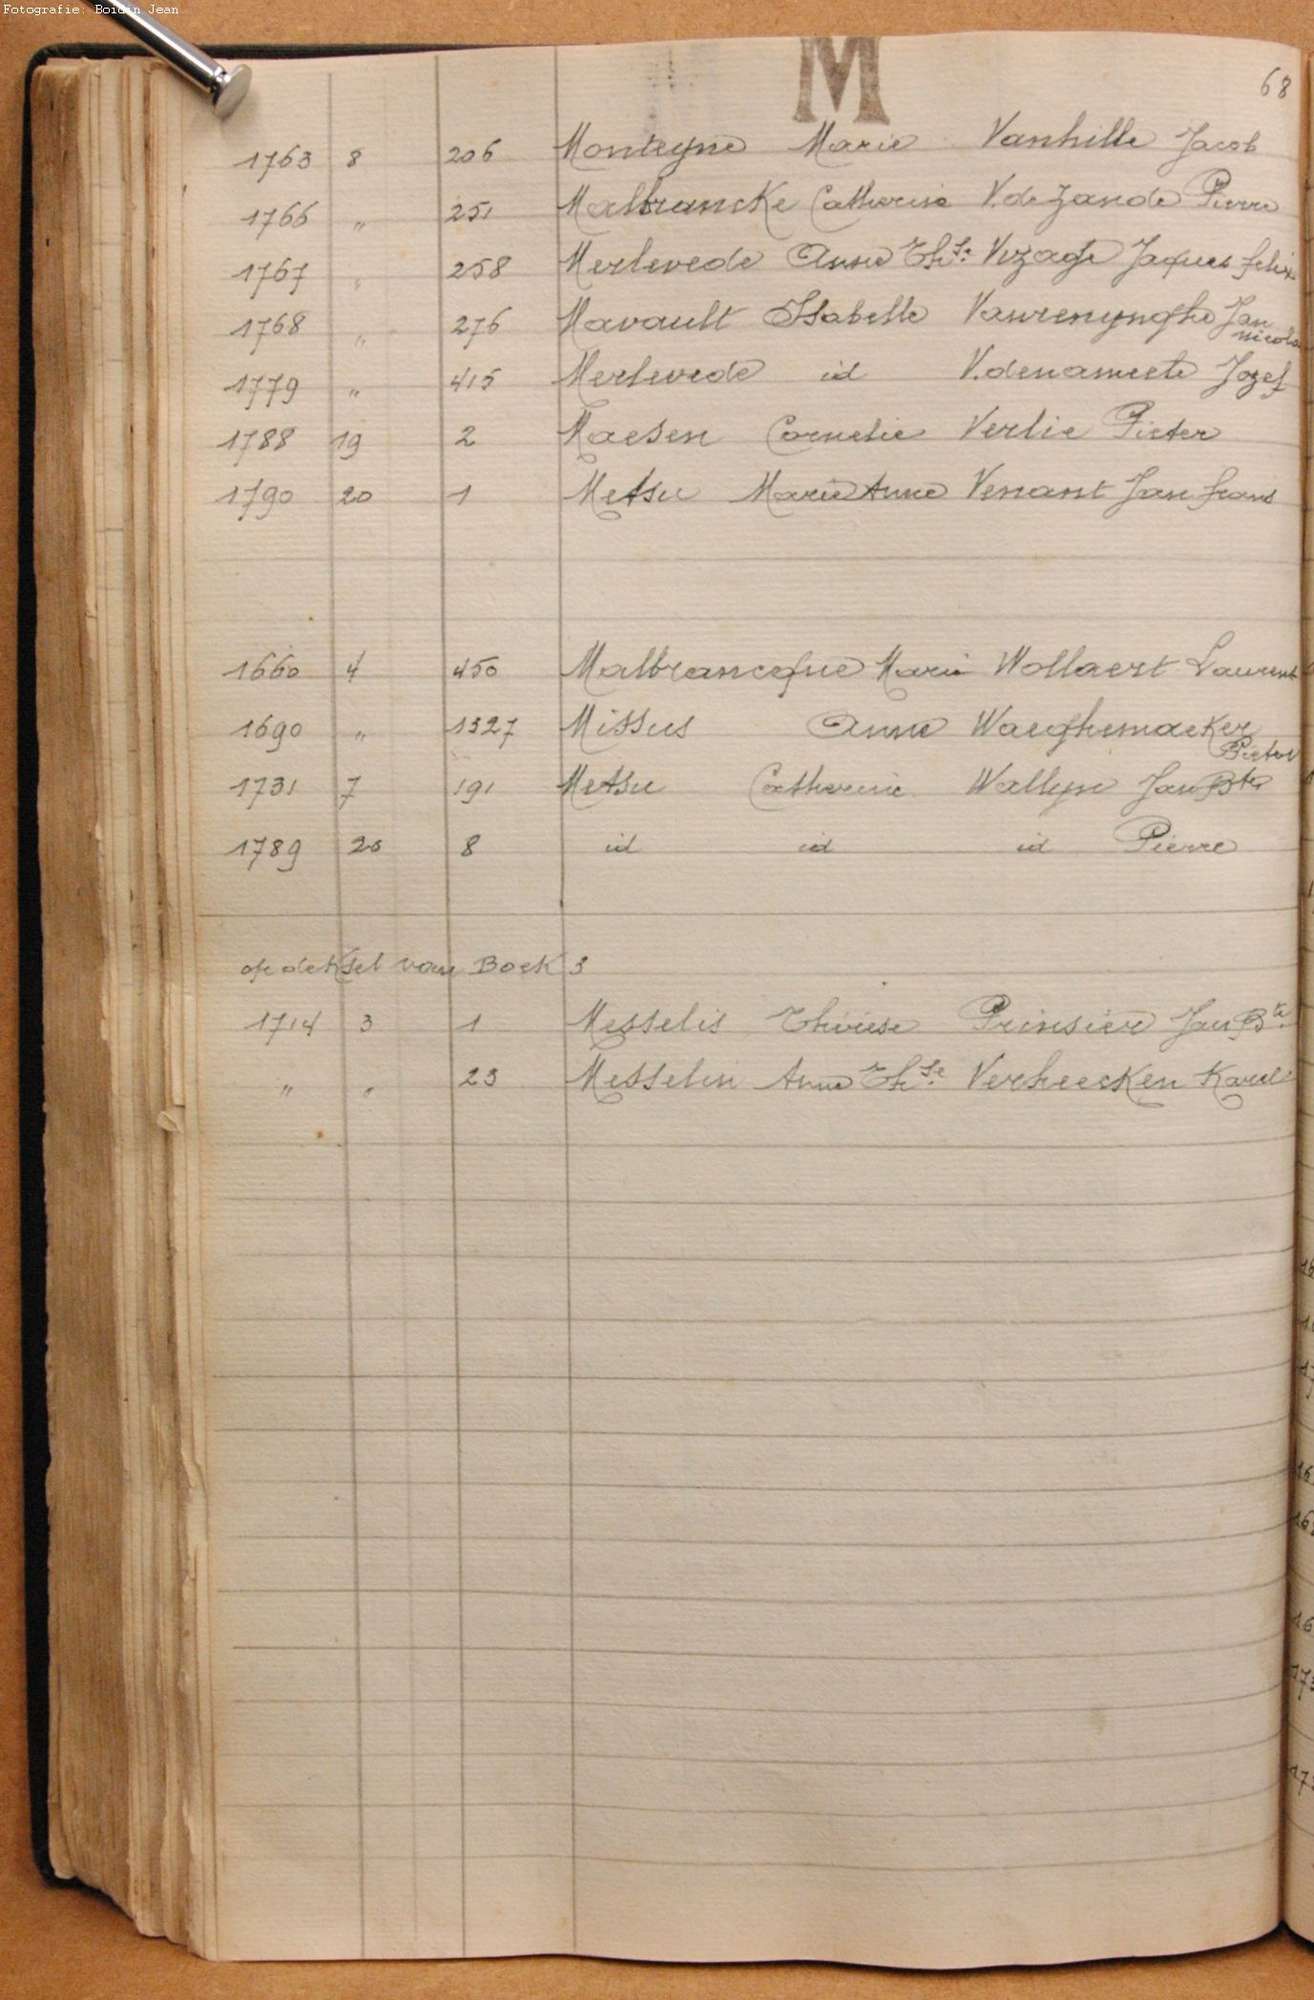 Fotografie: Boidin Jean
M
68
1763 8 206 Monteyne Marie Vanhille Jacob
1766 „ 251 Malbrancke Catherine V.de Zande Pierre
1767 „ 258 Merlevede Anne Thse Vizage Jaques felix
1768 „ 276 Mavault Isabelle Vanrenynghe Jan
nicolas
1779 „ 415 Merlevede id V.denameele Jozef
1788 19 2 Maesen Cornelie Verlie Pieter
1790 20 1 Metsu Marie Anne Venant Jan frans
1660 4 450 Malbrancque Marie Wollaert Laurent
1690 „ 1327 Missus Anne Waeghemaeker
Pieter
1731 7 191 Metsu Catherine Wallyn Jan Bte
1789 20 8 id id id Pierre
op deksel van Boek 3
1714 3 1 Messelis Thérèse Prinsier Jan Bte
„ „ 23 Messelin Anne Thse Verheecken Karel